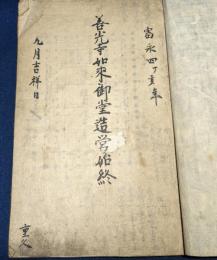 宝永四丁亥年
善光寺如来御堂造営始終
九月吉祥日
重久